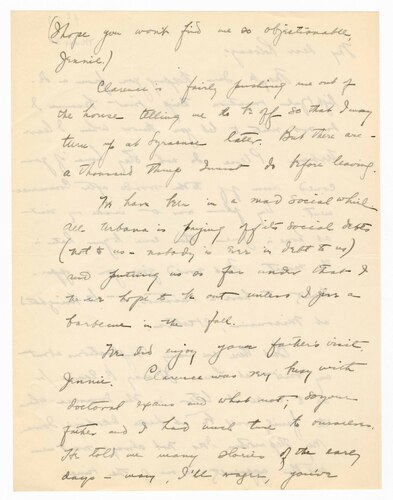 (I hope you won't find me so objectionable,
Jennie.)
Clarence is fairly pushing me out of
the house telling me to be off so that I may
turn up at Syracuse later. But there are
a thousand things I want to do before leaving.
We have been in a mad social whirl
All Urbana is paying off its social debts
(not to us - nobody is ever in debt to us)
and putting us so far under that I
never hope to be out unless I give a
barbecue in the fall.
We did enjoy your father's visit,
Jennie. Clarence was very busy with
doctoral exams and what not, so your
father and I had much time to ourselves.
He told me many stories of the early
days - many, I'll wager, you've